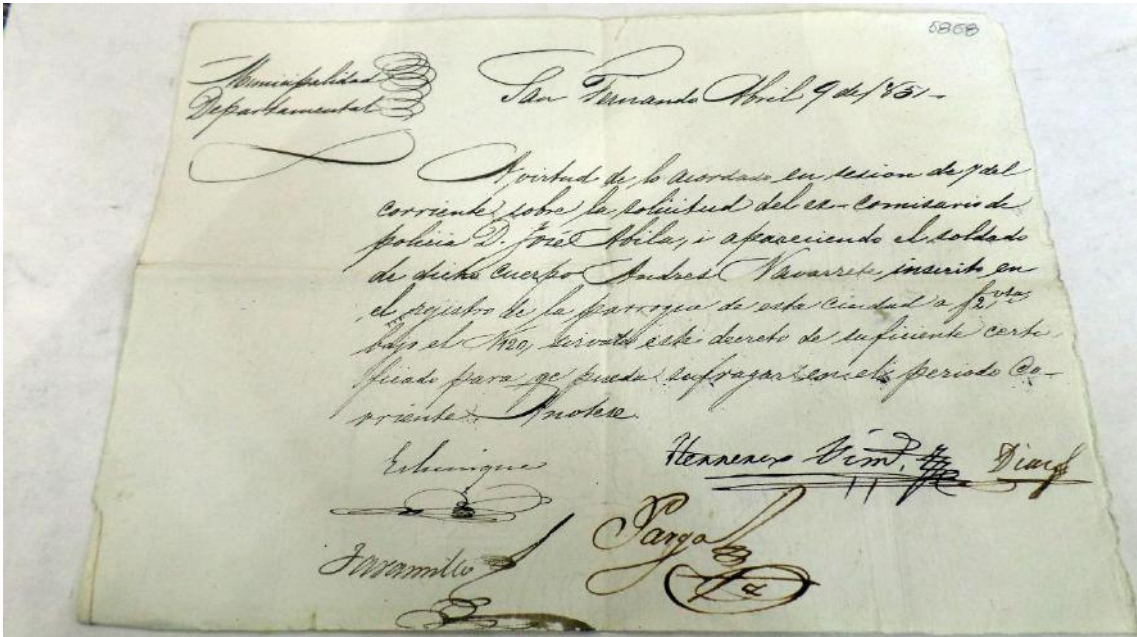 5868
Municipalidad
Departamental
San Fernando Abril 9 de 1851-
A virtud de lo acordado en sesion de 7 del
corriente, sobre la solicitud del ex-comisario de
policia D. José Abila, i apareciendo el soldado
de dicho cuerpo Andres Navarrete, inscrito en
el registro de la parroquia de esta ciudad a f 2 vta
bajo el N 20, sirva este decreto de suficiente certi
ficado para qe pueda sufragar en el periodo Co-
rriente. Anotese
Diaz
Jaramillo
Pargo